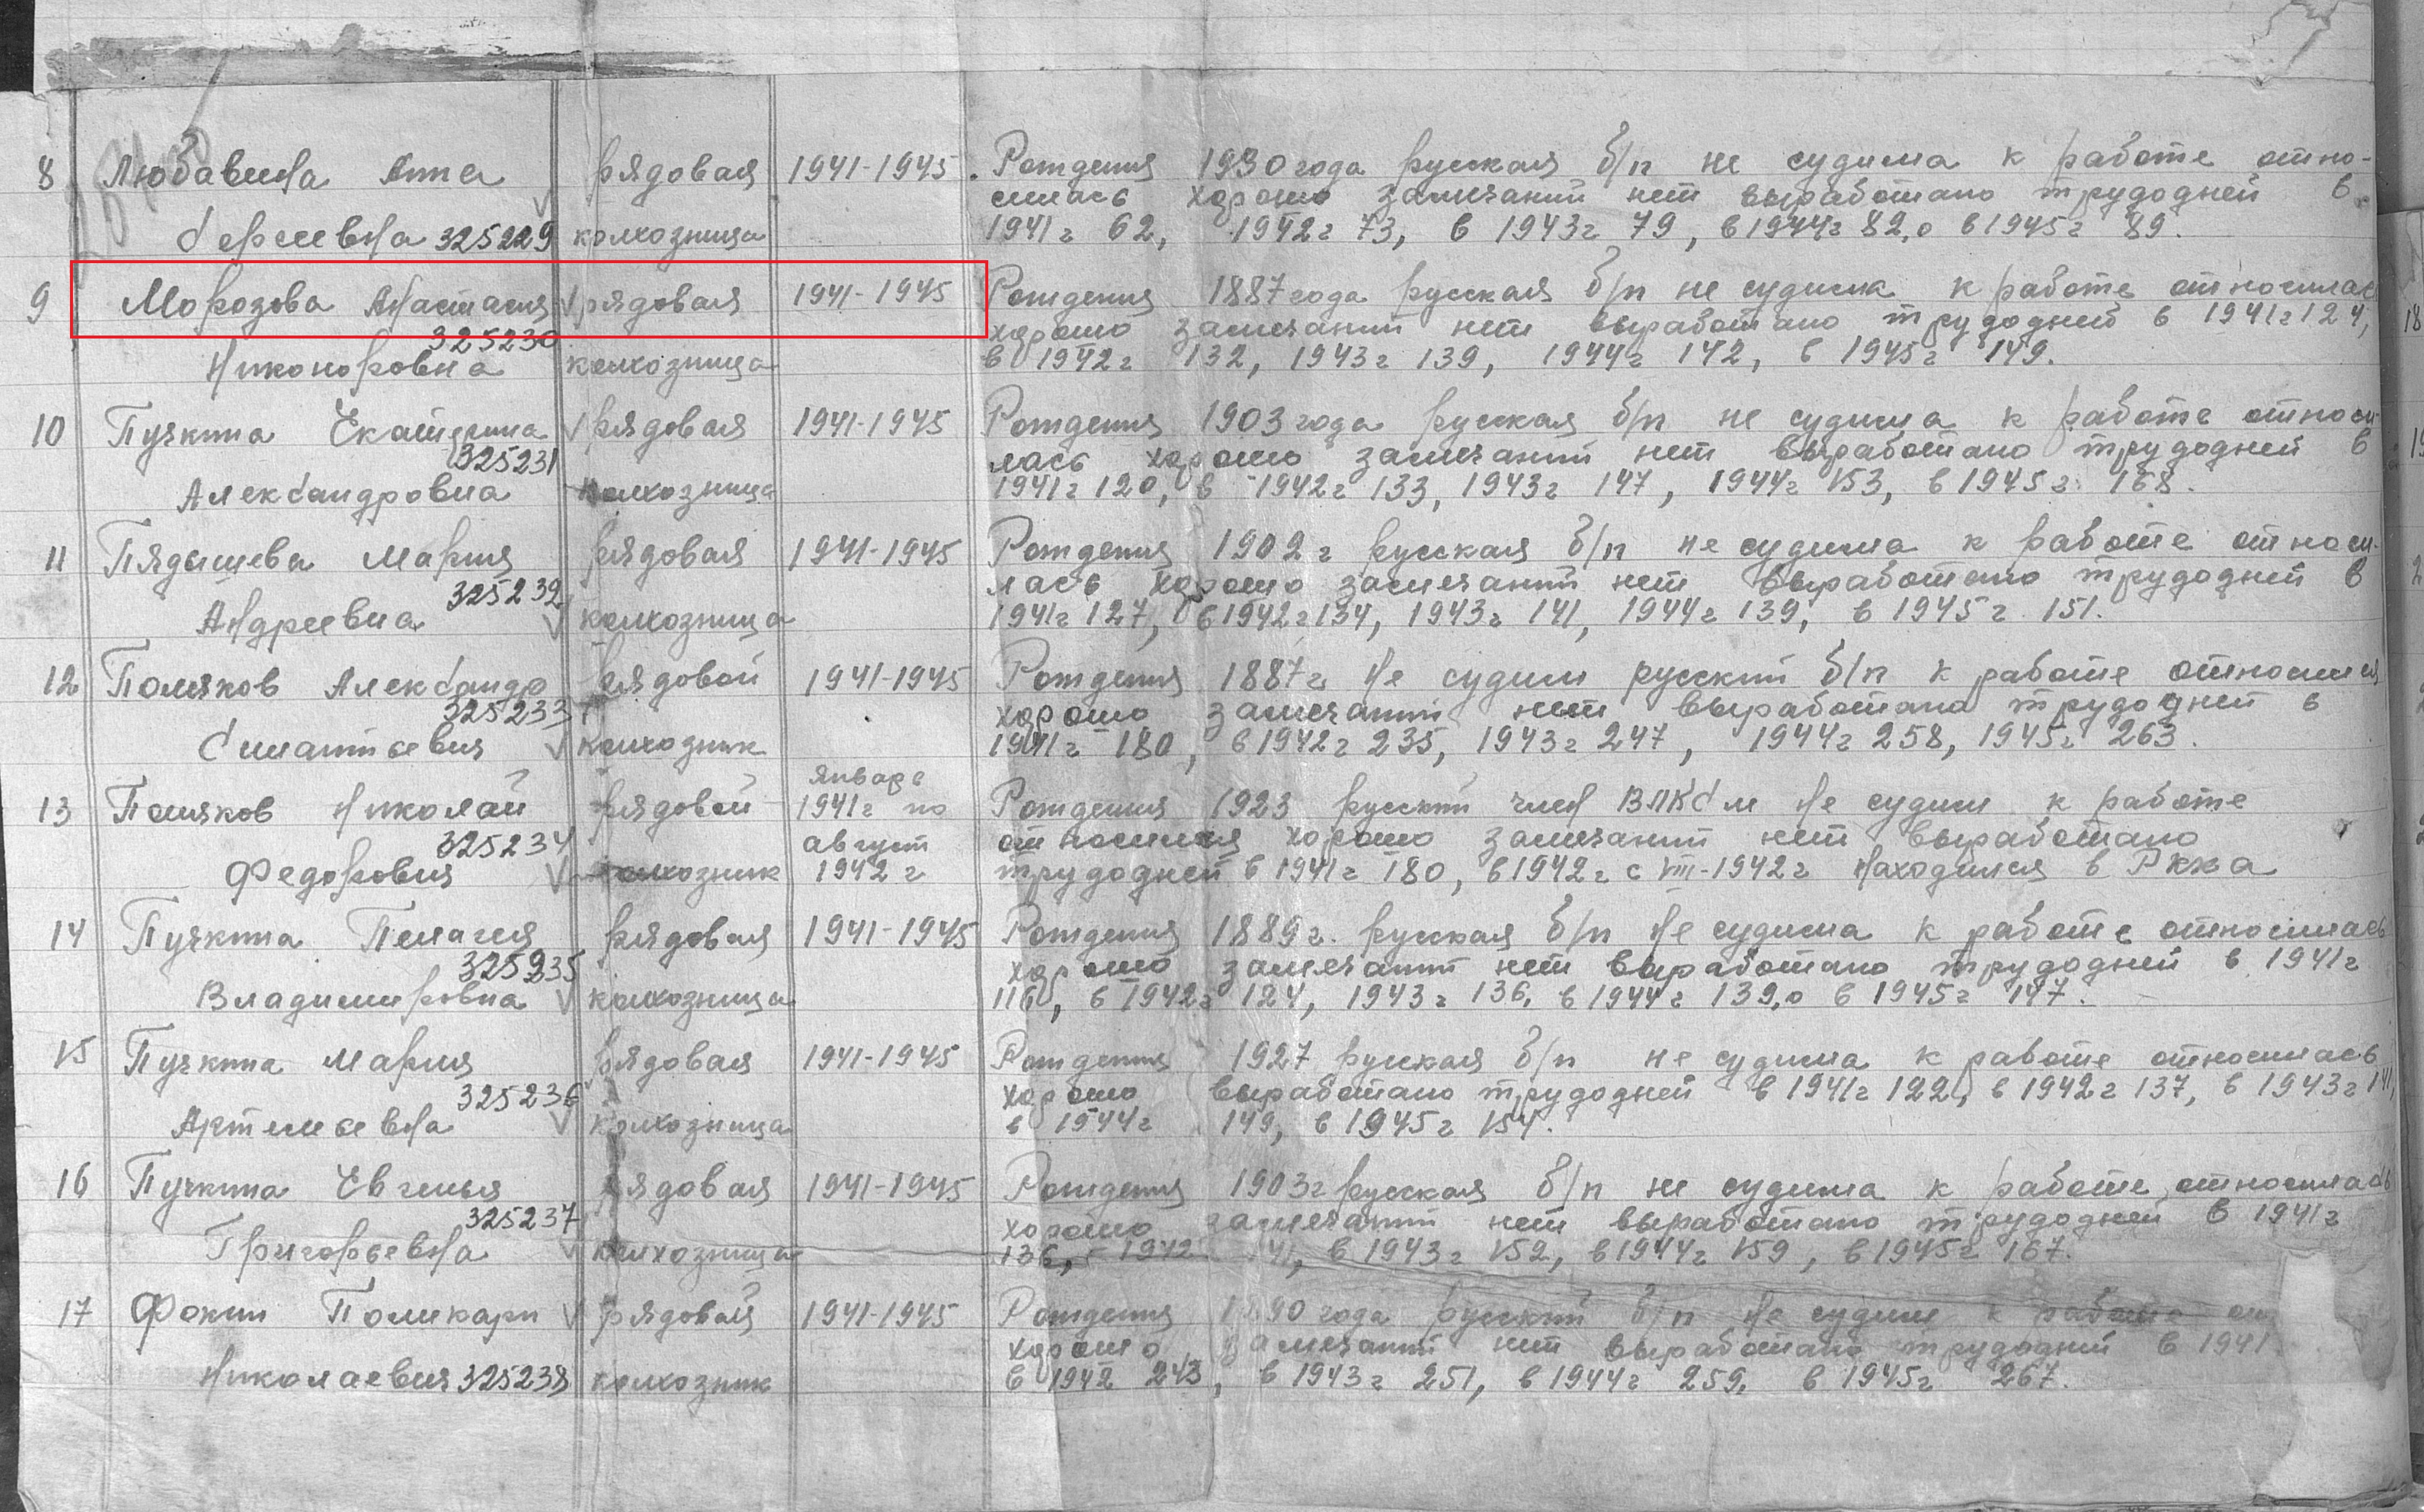 8 Любавина Анна рядовая 1941-1945. Рождения 1930 года русская б/п не судима к работе отно-
силась хорошо замечаний нет выработано трудодней в
Сергеевна 325229 колхозница 1941г 62, 1942г 73, в 1943г 79, в 1944г 82, в 1945г 89.
9 Морозова Анастасия рядовая 1941-1945 Рождения 1887 года русская б/п не судима к работе относилас
хорошо замечаний нет выработано трудодней в 1941г 124,
325230
Никоноровна колхозница в 1942г 132, 1943г 139, 1944г 142, в 1945г 149.
10 Пучкина Екатерина рядовая 1941-1945 Рождения 1903 года русская б/п не судима к работе относи-
325231 лась хорошо замечаний нет выработано трудодней в
Александровна колхозница 1941г 120, в 1942г 133, 1943г 147, 1944г 153, в 1945г 168.
11 Пядышева Мария рядовая 1941-1945 Рождения 1902г русская б/п не судима к работе относи-
325232 лась хорошо замечаний нет выработано трудодней в
Андреевна колхозница 1941г 127, в 1942г 134, 1943г 141, 1944г 139, в 1945г 151.
12 Поляков Александр рядовой 1941-1945 Рождения 1887г не судим русский б/п к работе относился
325233 хорошо замечаний нет выработано трудодней в
колхозник 1941г 180, в 1942г 235, 1943г 247, 1944г 258, 1945г 263.
январь
13 Поляков Николай рядовой 1941г по Рождения 1923 русский член ВЛКСМ не судим к работе
325234 август относился хорошо замечаний нет выработано
Федорович колхозник 1942г трудодней в 1941г 180, в 1942г с VIII-1942г находился в РККА
14 Пучкина Пелагия рядовая 1941-1945 Рождения 1889г. русская б/п не судима к работе относилась
325235 хорошо замечаний нет выработано трудодней в 1941г
Владимировна колхозница 116, в 1942г 124, 1943г 136, в 1944г 139, в 1945г 147.
15 Пучкина Мария рядовая 1941-1945 Рождения 1927 русская б/п не судима к работе относилась
325236 хорошо выработано трудодней в 1941г 122, в 1942г 137, в 1943г 141,
Артемьевна колхозница в 1944г 149, в 1945г 154.
16 Пучкина Евгенья рядовая 1941-1945 Рождения 1903г русская б/п не судима к работе относилась
325237 хорошо замечаний нет выработано трудодней в 1941г
Григорьевна колхозница 136, 1942 141, в 1943г 152, в 1944г 159, в 1945г 167.
17 Фокин Поликарп рядовой 1941-1945 Рождения 1890 года русский б/п не судим к работе от
хорошо замечаний нет выработано трудодней в 1941
Николаевич 325238 колхозник в 1942 243, в 1943г 251, в 1944г 259, в 1945г 267.